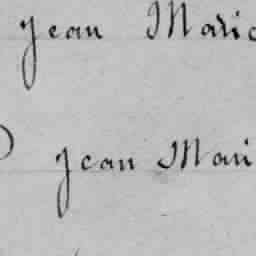 Jean Marie
Jean Mari